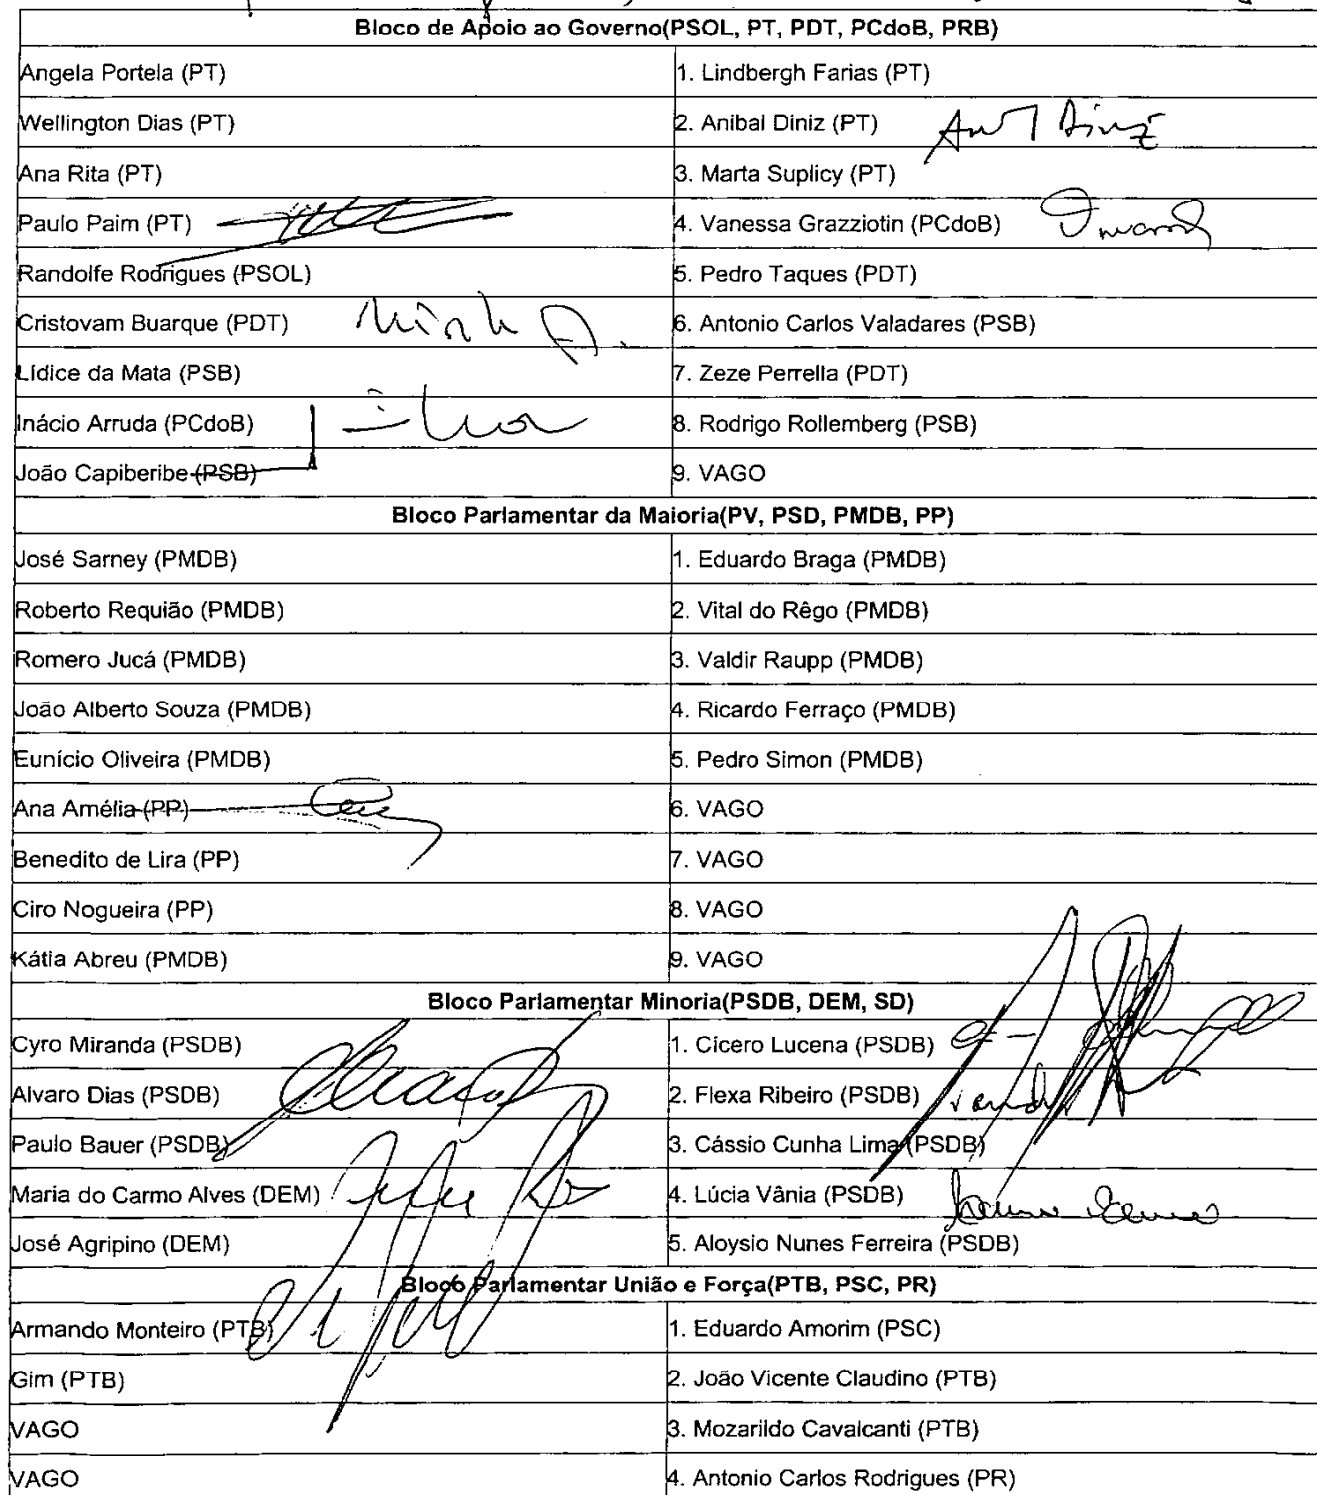 Bloco de Apoio ao Governo(PSOL, PT, PDT, PCdoB, PRB)
Angela Portela (PT) 1. Lindbergh Farias (PT)
Wellington Dias (PT) 2. Anibal Diniz (PT)
Ana Rita (PT) 3. Marta Suplicy (PT)
Paulo Paim (PT) 4. Vanessa Grazziotin (PCdoB)
Randolfe Rodrigues (PSOL) 5. Pedro Taques (PDT)
Cristovam Buarque (PDT) 6. Antonio Carlos Valadares (PSB)
Lídice da Mata (PSB) 7. Zeze Perrella (PDT)
Inácio Arruda (PCdoB) 8. Rodrigo Rollemberg (PSB)
João Capiberibe (PSB) 9. VAGO
Bloco Parlamentar da Maioria(PV, PSD, PMDB, PP)
José Sarney (PMDB) 1. Eduardo Braga (PMDB)
Roberto Requião (PMDB) 2. Vital do Rêgo (PMDB)
Romero Jucá (PMDB) 3. Valdir Raupp (PMDB)
João Alberto Souza (PMDB) 4. Ricardo Ferraço (PMDB)
Eunício Oliveira (PMDB) 5. Pedro Simon (PMDB)
Ana Amélia (PP) 6. VAGO
Benedito de Lira (PP) 7. VAGO
Ciro Nogueira (PP) 8. VAGO
Kátia Abreu (PMDB) 9. VAGO
Bloco Parlamentar Minoria(PSDB, DEM, SD)
Cyro Miranda (PSDB) 1. Cícero Lucena (PSDB)
Alvaro Dias (PSDB) 2. Flexa Ribeiro (PSDB)
Paulo Bauer (PSDB) 3. Cássio Cunha Lima (PSDB)
Maria do Carmo Alves (DEM) 4. Lúcia Vânia (PSDB)
José Agripino (DEM) 5. Aloysio Nunes Ferreira (PSDB)
Bloco Parlamentar União e Força(PTB, PSC, PR)
Armando Monteiro (PTB) 1. Eduardo Amorim (PSC)
Gim (PTB) 2. João Vicente Claudino (PTB)
VAGO 3. Mozarildo Cavalcanti (PTB)
VAGO 4. Antonio Carlos Rodrigues (PR)